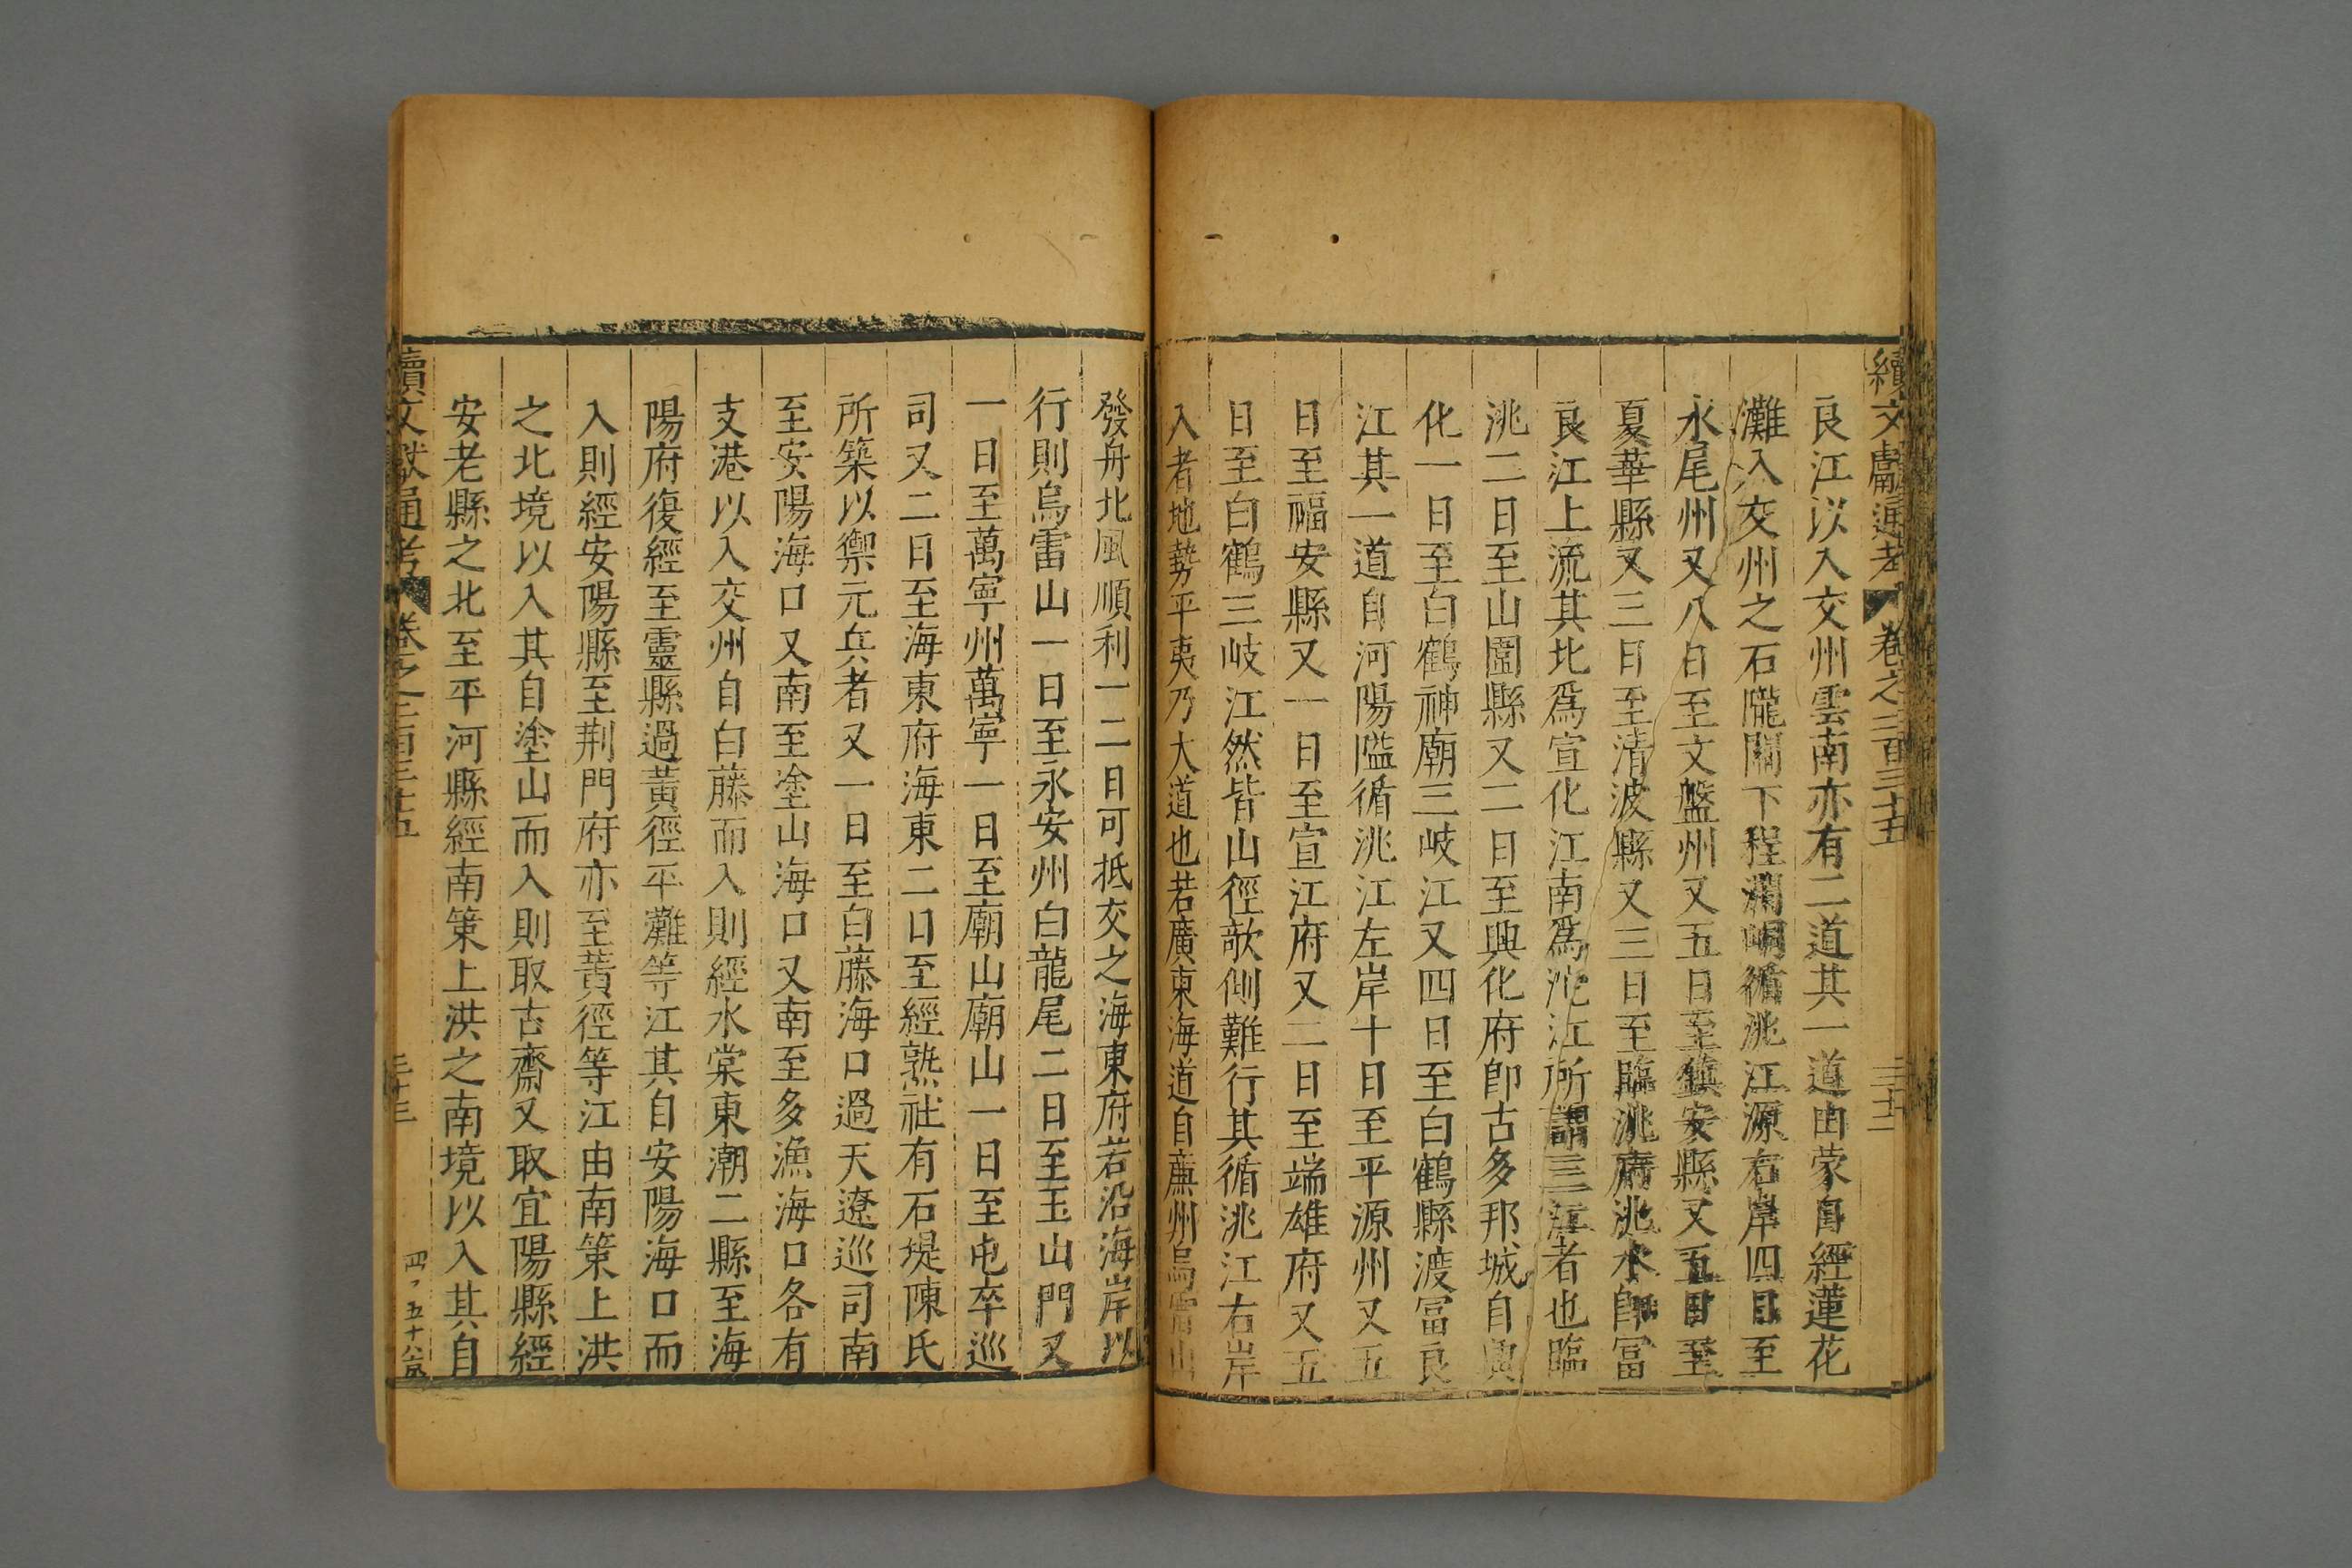 續文獻通考 卷之二百三十五
良江以入交州雲南亦有二道其一道由蒙自經蓮花
灘入交州之石隴關下程瀾峒循洮江源右岸四日至
永尾州又八日至文盤州又五日至鎮安縣又五日至
夏華縣又三日至清波縣又三日至臨洮府洮水即冨
良江上流其北爲宣化江南爲沱江所謂三江者也臨
洮二日至山圍縣又二日至興化府即古多邦城自興
化一日至白鶴神廟三岐江又四日至白鶴縣渡冨良
江其一道自河陽隘循洮江左岸十日至平源州又五
日至福安縣又一日至宣江府又二日至端雄府又五
日至白鶴三岐江然皆山徑欹側難行其循洮江右岸
入者地勢平夷乃大道也若廣東海道自廉州烏雷山
發舟北風順利一二日可抵交之海東府若沿海岸以
行則烏雷山一日至永安州白龍尾二日至玉山門又
一日至萬寧州萬寧一日至廟山廟山一日至屯卒巡
司又二日至海東府海東二日至經熟社有石堤陳氏
所築以禦元兵者又一日至白藤海口過天遼巡司南
至安陽海口又南至塗山海口又南至多漁海口各有
支港以入交州自白藤而入則經水棠東潮二縣至海
陽府復經至靈縣過黃徑平灘等江其自安陽海口而
入則經安陽縣至荆門府亦至黃徑等江由南策上洪
之北境以入其自塗山而入則取古齋又取宜陽縣經
安老縣之北至平河縣經南策上洪之南境以入其自
續文獻通考 卷之二百三十五 三十三